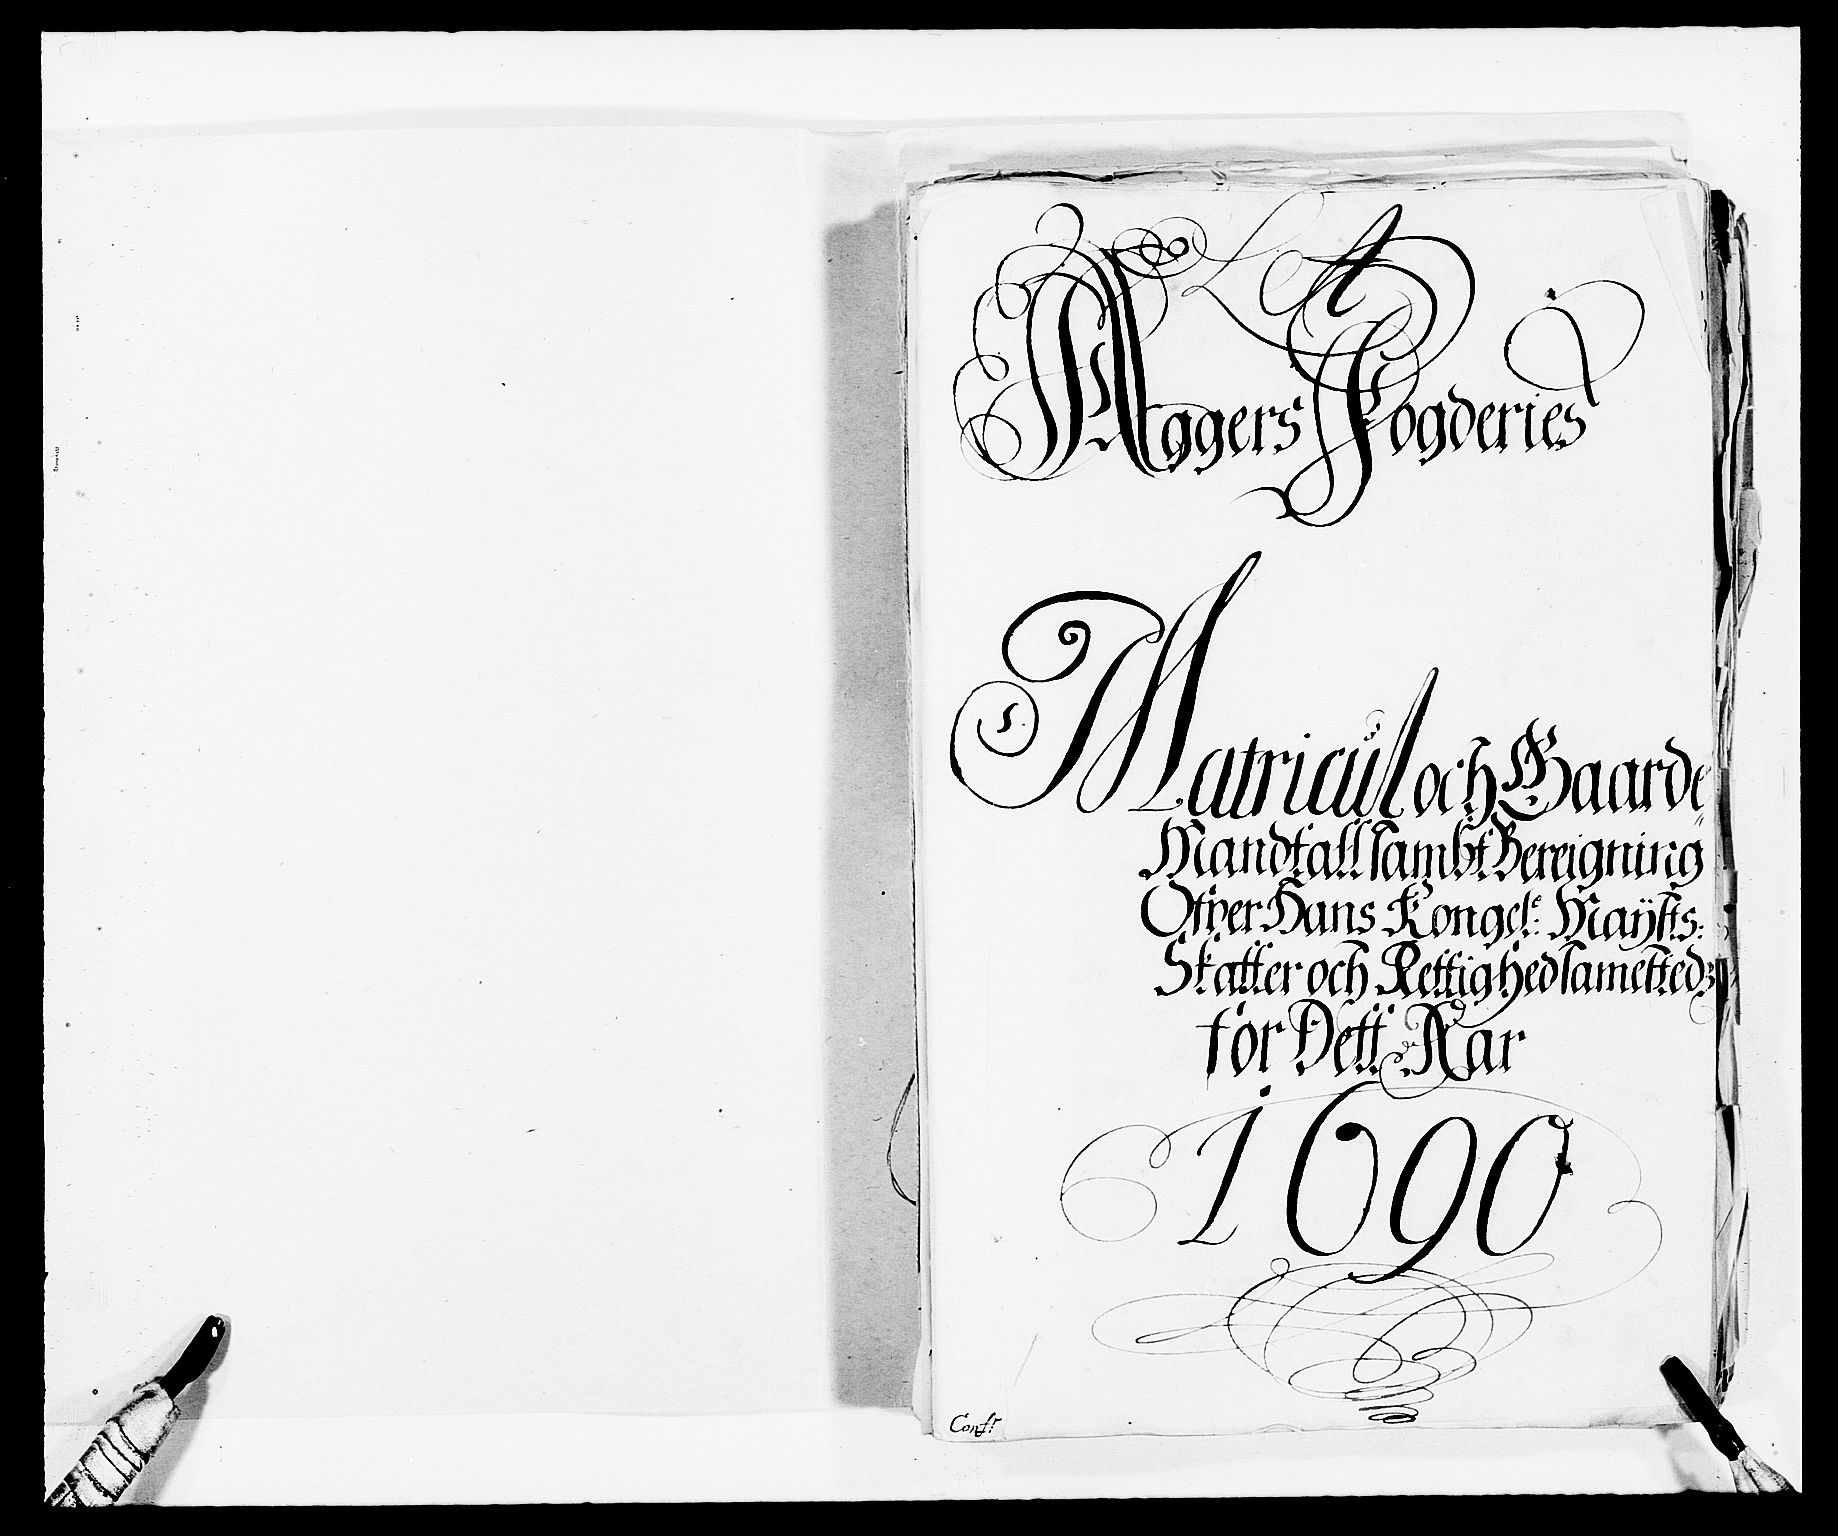 L A
Aggers Fogderies
Matricul och Gaarde
Mandtall sambt Bereigning
Ofver Hans Kongel: Maÿsts:
Skatter och Rettighed sametteds
for Dett Aar
1690
Conf:r